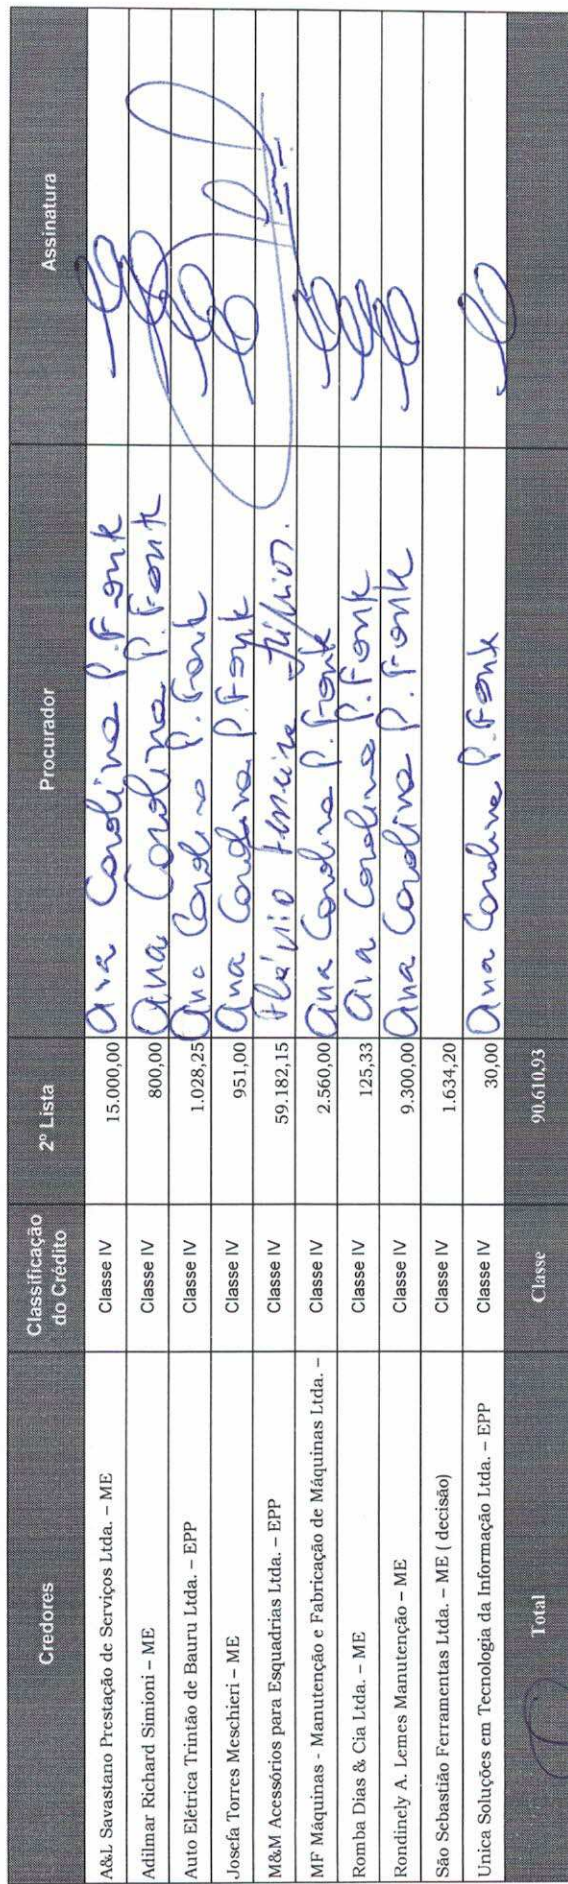 Credores Classificação do Crédito 2º Lista Procurador Assinatura
A&L Savastano Prestação de Serviços Ltda. – ME Classe IV 15.000,00 Ana Carolina P. Fonk
Adilmar Richard Simioni – ME Classe IV 800,00 Ana Carolina P. Fonk
Auto Elétrica Trintão de Bauru Ltda. – EPP Classe IV 1.028,25 Ana Carolina P. Fonk
Josefa Torres Meschieri – ME Classe IV 951,00 Ana Carolina P. Fonk
M&M Acessórios para Esquadrias Ltda. – EPP Classe IV 59.182,15 Júnior.
MF Máquinas - Manutenção e Fabricação de Máquinas Ltda. – Classe IV 2.560,00 Ana Carolina P. Fonk
Romba Dias & Cia Ltda. – ME Classe IV 125,33 Ana Carolina P. Fonk
Rondinely A. Lemes Manutenção – ME Classe IV 9.300,00 Ana Carolina P. Fonk
São Sebastião Ferramentas Ltda. – ME ( decisão) Classe IV 1.634,20
Unica Soluções em Tecnologia da Informação Ltda. – EPP Classe IV 30,00 Ana Carolina P. Fonk
Total Classe 90.610,93